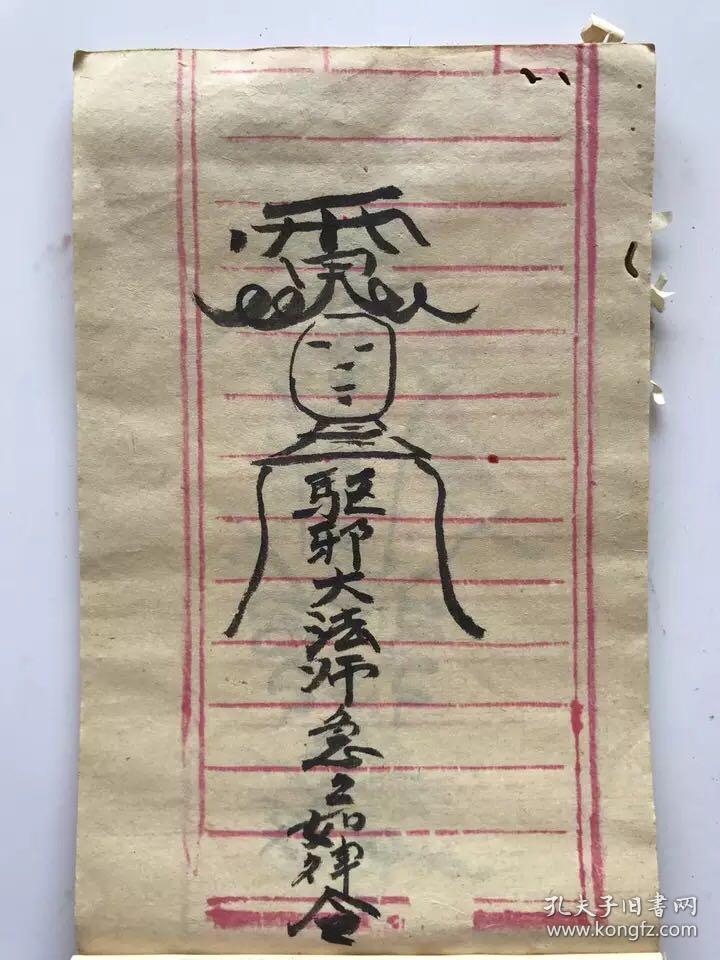 驱邪大法师急々如律令
孔夫子旧书网
www.kongfz.com